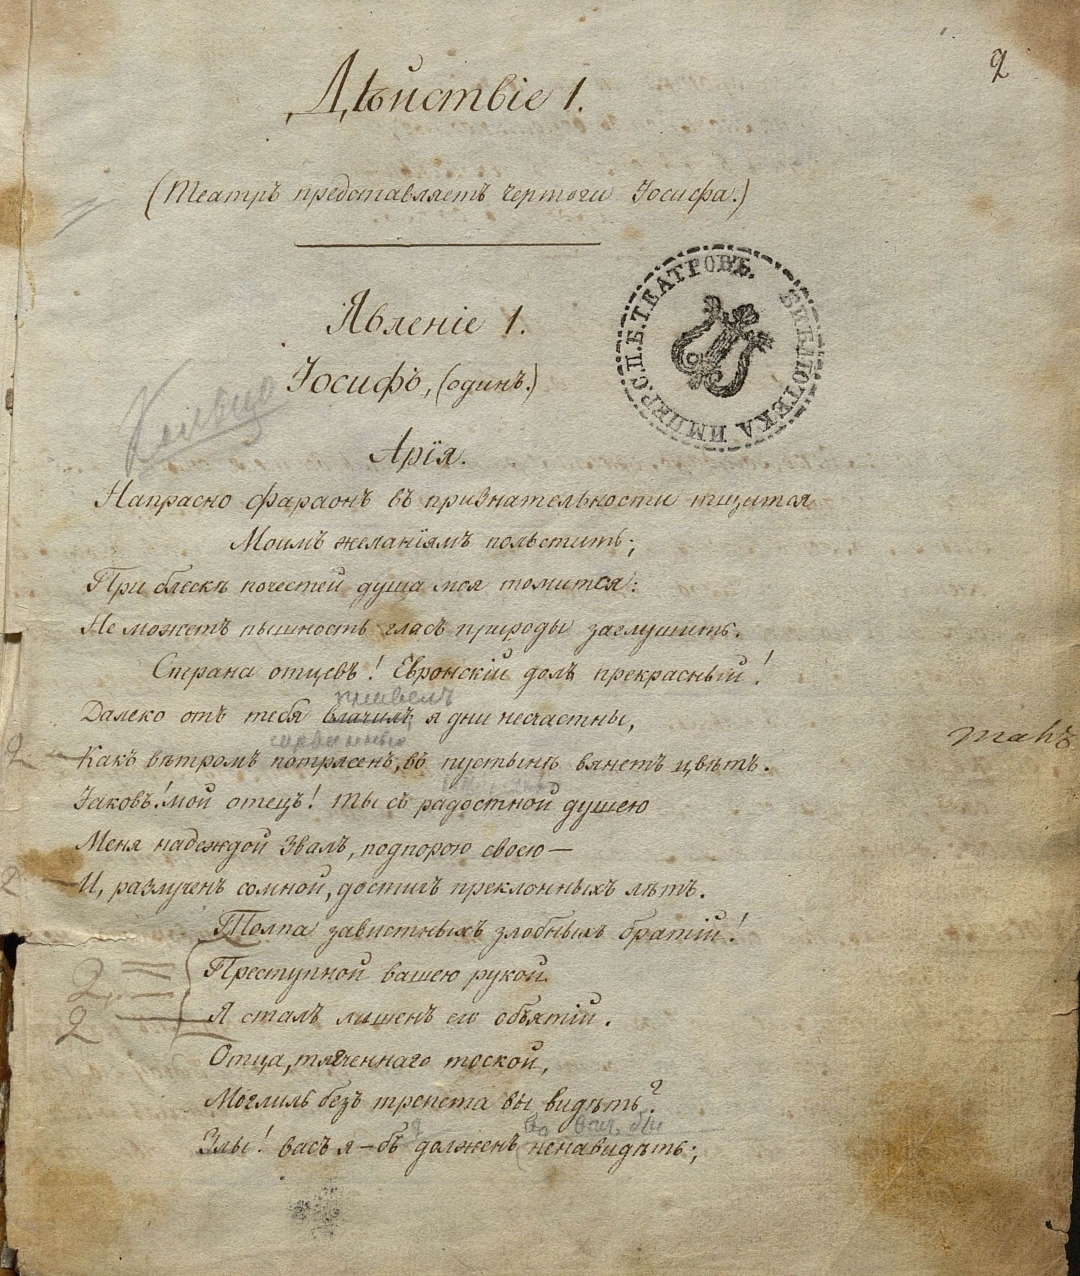 2
Дѣйствіе 1.
(Театръ представляетъ чертоги Іосифа.)
БИБЛІОТЕКА ИМПЕР. С.П.Б. ТЕАТРОВЪ.
Явленіе 1.
Іосифъ, (одинъ.)
Арія.
Напрасно фараонъ въ признательности тщится
Моимъ желаніямъ польстить;
При блескѣ почестей душа моя томится:
Не можетъ пышность гласъ природы заглушить.
Страна отцевъ! Евронскій долъ прекрасный!
Далеко отъ тебя влачилъ я дни несчастны,
такъ
2 Какъ вѣтромъ потрясенъ, въ пустынѣ вянетъ цвѣтъ.
Іаковъ! мой отецъ! ты съ радостной душею
Меня надеждой звалъ, подпорою своею—
2 И, разлученъ со мной, достигъ преклонныхъ лѣтъ.
Толпа завистныхъ злобныхъ братій!
2 Преступной вашею рукой
2 Я сталъ лишенъ его объятій.
Отца, тягченнаго тоской,
Моглиль безъ трепета вы видѣть?
Злы! васъ я–бъ долженъ ненавидѣть;